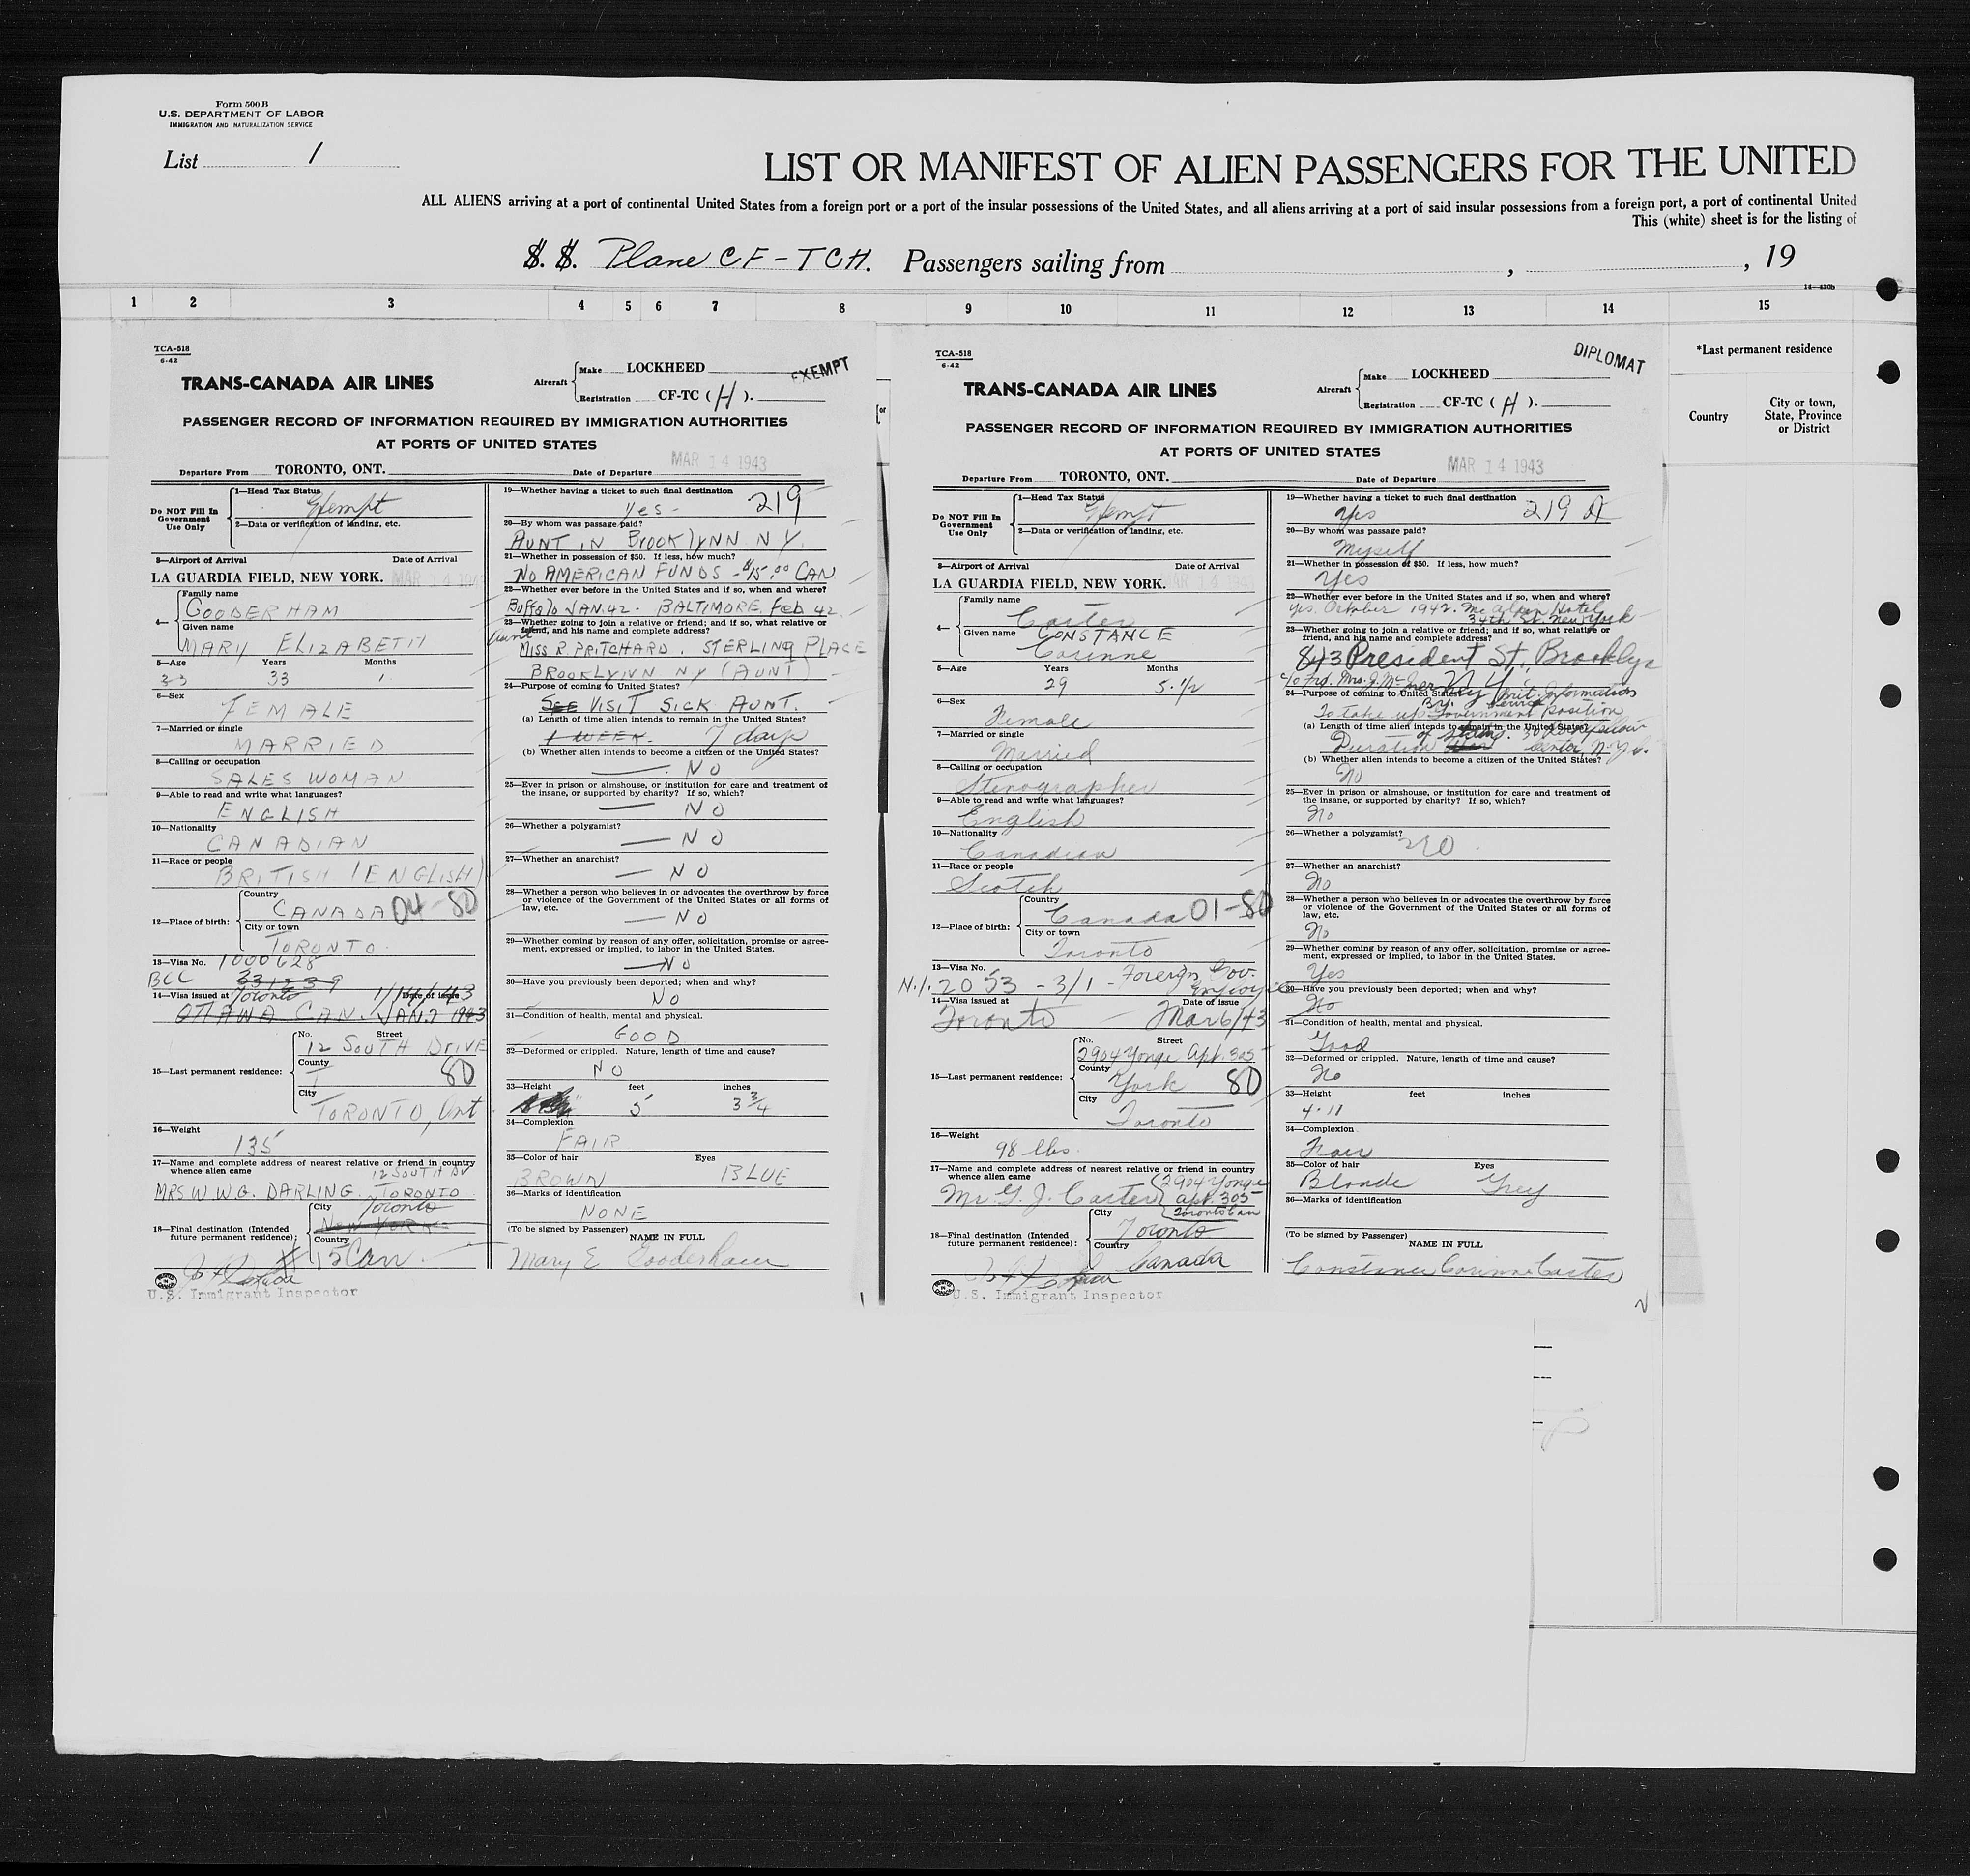 Form 500 B
U.S. DEPARTMENT OF LABOR
IMMIGRATION AND NATURALIZATION SERVICE
List 1
LIST OR MANIFEST OF ALIEN PASSENGERS FOR THE UNITED
ALL ALIENS arriving at a port of continental United States from a foreign port or a port of the insular possessions of the United States, and all aliens arriving at a port of said insular possessions from a foreign port, a port of continental United
This (white) sheet is for the listing of
S. S. Plane CF-TCH. Passengers sailing from , , 19
1 2 3 4 5 6 7 8 9 10 11 12 13 14 15
*Last permanent residence
Country
City or town,
State, Province
or District
TCA-518
6-42
EXEMPT
TRANS-CANADA AIR LINES
Aircraft
Make LOCKHEED
Registration CF-TC (H).
PASSENGER RECORD OF INFORMATION REQUIRED BY IMMIGRATION AUTHORITIES
AT PORTS OF UNITED STATES
Departure From TORONTO, ONT. Date of Departure MAR 14 1943
Do NOT Fill In
Government
Use Only
1—Head Tax Status
Exempt
2—Data or verification of landing, etc.
3—Airport of Arrival Date of Arrival
LA GUARDIA FIELD, NEW YORK. MAR 14 1943
4—
Family name
GOODERHAM
Given name
MARY ELIZABETH
5—Age Years Months
33 33 1
6—Sex
FEMALE
7—Married or single
MARRIED
8—Calling or occupation
SALES WOMAN
9—Able to read and write what languages?
ENGLISH
10—Nationality
CANADIAN
11—Race or people
BRITISH (ENGLISH)
12—Place of birth:
Country
CANADA 04-80
City or town
TORONTO
13—Visa No. 1000628
BCC 331239
14—Visa issued at Toronto Date of issue 1/14/43
OTTAWA CAN. JAN. 7 1943
15—Last permanent residence:
No. Street
12 SOUTH DRIVE
County
80
City
TORONTO, Ont
16—Weight
135
17—Name and complete address of nearest relative or friend in country
whence alien came 12 SOUTH DV
MRS W.W.G. DARLING. TORONTO
18—Final destination (Intended
future permanent residence):
City Toronto
NEW YORK
Country
Can.
U.S. Immigrant Inspector
19—Whether having a ticket to such final destination
Yes - 219
20—By whom was passage paid?
AUNT IN BROOKLYNN NY.
21—Whether in possession of $50. If less, how much?
NO AMERICAN FUNDS - $15.00 CAN
22—Whether ever before in the United States and if so, when and where?
Buffalo JAN. 42. BALTIMORE. Feb 42.
23—Whether going to join a relative or friend; and if so, what relative or
friend, and his name and complete address?
Aunt
MISS R. PRITCHARD, STERLING PLACE
BROOKLYNN NY (AUNT)
24—Purpose of coming to United States?
SEE VISIT SICK AUNT.
(a) Length of time alien intends to remain in the United States?
1 WEEK. 7 days
(b) Whether alien intends to become a citizen of the United States?
— NO
25—Ever in prison or almshouse, or institution for care and treatment of
the insane, or supported by charity? If so, which?
— NO
26—Whether a polygamist?
— NO
27—Whether an anarchist?
— NO
28—Whether a person who believes in or advocates the overthrow by force
or violence of the Government of the United States or all forms of
law, etc.
— NO
29—Whether coming by reason of any offer, solicitation, promise or agree-
ment, expressed or implied, to labor in the United States.
— NO
30—Have you previously been deported; when and why?
NO
31—Condition of health, mental and physical.
GOOD
32—Deformed or crippled. Nature, length of time and cause?
NO
33—Height feet inches
5 3 3/4
34—Complexion
FAIR
35—Color of hair Eyes
BROWN BLUE
36—Marks of identification
NONE
(To be signed by Passenger)
NAME IN FULL
Mary E Gooderham
1
TCA-518
6-42
DIPLOMAT
TRANS-CANADA AIR LINES
Aircraft
Make LOCKHEED
Registration CF-TC (H).
PASSENGER RECORD OF INFORMATION REQUIRED BY IMMIGRATION AUTHORITIES
AT PORTS OF UNITED STATES
Departure From TORONTO, ONT. Date of Departure MAR 14 1943
Do NOT Fill In
Government
Use Only
1—Head Tax Status
Exempt
2—Data or verification of landing, etc.
3—Airport of Arrival Date of Arrival
LA GUARDIA FIELD, NEW YORK. MAR 14 1943
4—
Family name
Carter
Given name CONSTANCE
Corinne
5—Age Years Months
29 5 1/2
6—Sex
Female
7—Married or single
Married
8—Calling or occupation
Stenographer
9—Able to read and write what languages?
English
10—Nationality
Canadian
11—Race or people
Scotch
12—Place of birth:
Country
Canada 01-80
City or town
Toronto
13—Visa No.
N.I. 2053 - 3/1 - Foreign Gov. Employee
14—Visa issued at Date of issue
Toronto Mar 6/43
15—Last permanent residence:
No. Street
2904 Yonge Apt. 305
County
York 80
City
Toronto
16—Weight
98 lbs.
17—Name and complete address of nearest relative or friend in country
whence alien came
Mr G. J. Carter 2904 Yonge
apt. 305
Toronto Can
18—Final destination (Intended
future permanent residence):
City
Toronto
Country
Canada
U.S. Immigrant Inspector
19—Whether having a ticket to such final destination
Yes 219
20—By whom was passage paid?
Myself
21—Whether in possession of $50. If less, how much?
Yes
22—Whether ever before in the United States and if so, when and where?
yes. October 1942. McAlpin Hotel,
34th St. New York
23—Whether going to join a relative or friend; and if so, what relative or
friend, and his name and complete address?
843 President St., Brooklyn
N.Y.
24—Purpose of coming to United States?
Brit. Information Service
To take up Government position
(a) Length of time alien intends to remain in the United States?
Duration of
Center, N.Y.
(b) Whether alien intends to become a citizen of the United States?
No
25—Ever in prison or almshouse, or institution for care and treatment of
the insane, or supported by charity? If so, which?
No
26—Whether a polygamist?
No
27—Whether an anarchist?
No
28—Whether a person who believes in or advocates the overthrow by force
or violence of the Government of the United States or all forms of
law, etc.
No
29—Whether coming by reason of any offer, solicitation, promise or agree-
ment, expressed or implied, to labor in the United States.
Yes
30—Have you previously been deported; when and why?
No
31—Condition of health, mental and physical.
Good
32—Deformed or crippled. Nature, length of time and cause?
No
33—Height feet inches
4.11
34—Complexion
Fair
35—Color of hair Eyes
Blonde Grey
36—Marks of identification
(To be signed by Passenger)
NAME IN FULL
Constance Corinne Carter
2